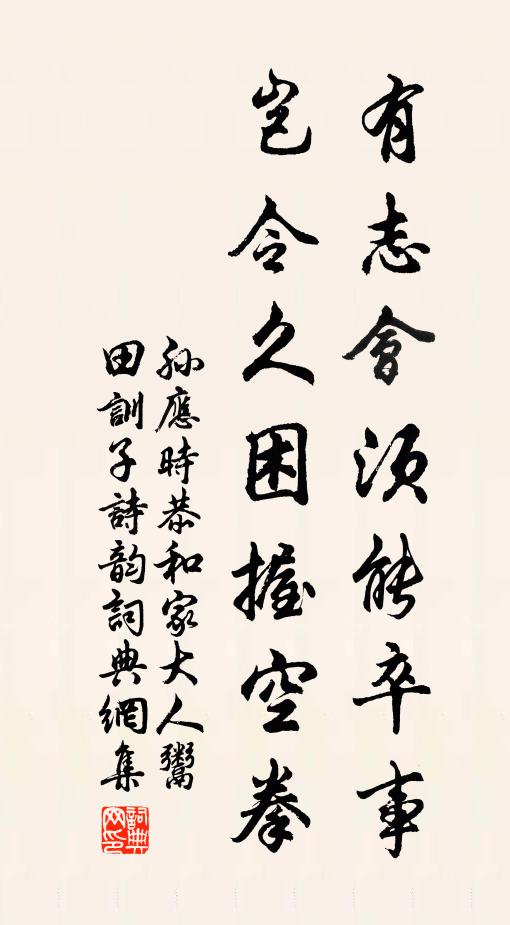 有志會須能卒事
豈令久困握空拳
孫應時恭和家大人鬻
田訓子詩韵詞典網集
詞典
网印